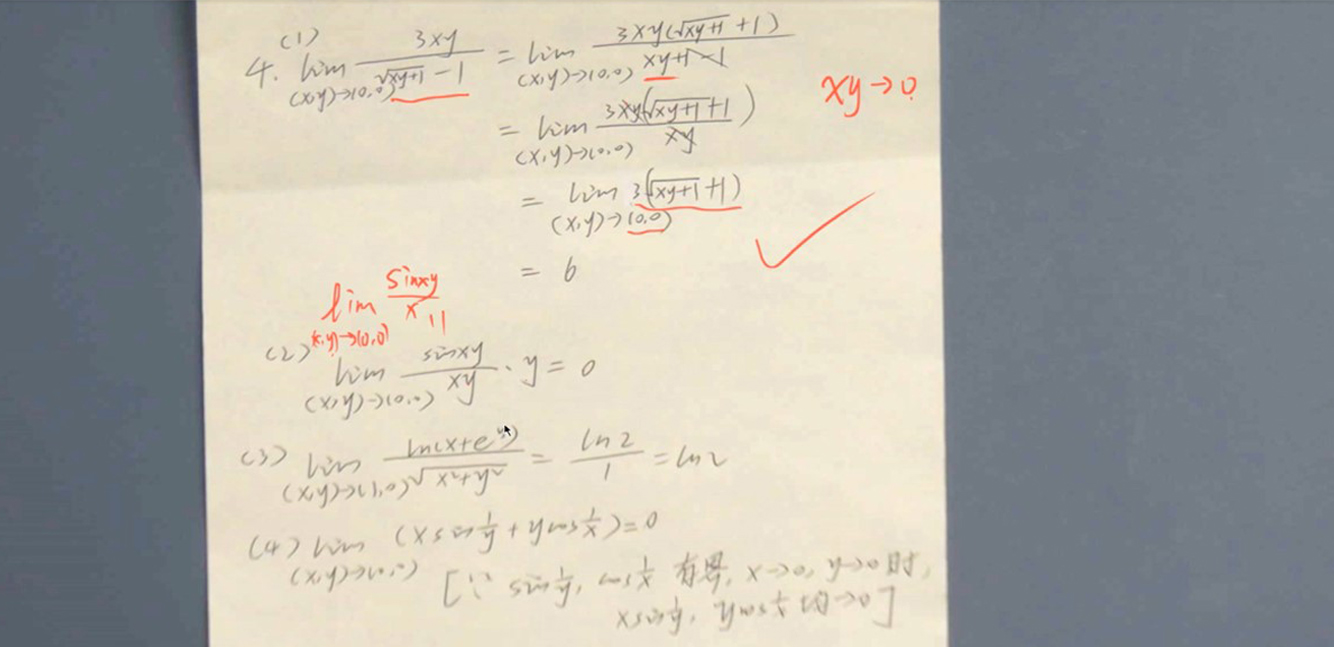 (1)
4. lim (x,y)→(0,0) 3xy/(√(xy+1) - 1) = lim (x,y)→(0,0) 3xy(√(xy+1) + 1)/(xy+1-1)
xy→0
= lim (x,y)→(0,0) 3xy(√(xy+1)+1)/xy
= lim (x,y)→(0,0) 3(√(xy+1)+1)
= 6
lim (x,y)→(0,0) sinxy/x
(2) lim (x,y)→(0,0) sinxy/xy · y = 0
(3) lim (x,y)→(1,0) ln(x+e^y)/√(x²+y²) = ln2/1 = ln2
(4) lim (x,y)→(0,0) (x sin 1/y + y cos 1/x) = 0
[∵ sin 1/y, cos 1/x 有界, x→0, y→0 时,
x sin 1/y, y cos 1/x 均→0]